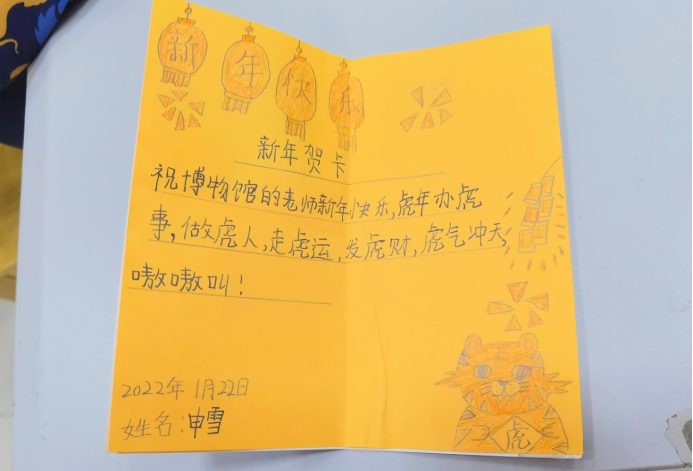 新年快乐
新年贺卡
祝博物馆的老师新年快乐,虎年办虎
事,做虎人,走虎运,发虎财,虎气冲天,
嗷嗷叫!
虎
2022年1月22日
姓名:申雪